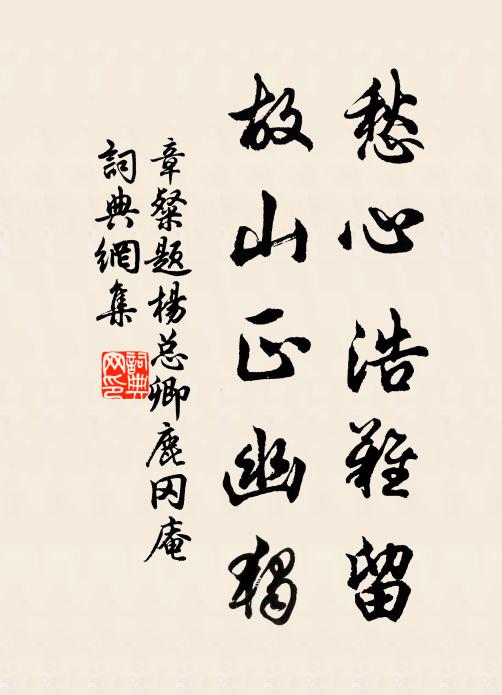 愁心浩難留
故山正幽獨
章粲题楊总卿鹿冈庵
詞典網集
詞典网印